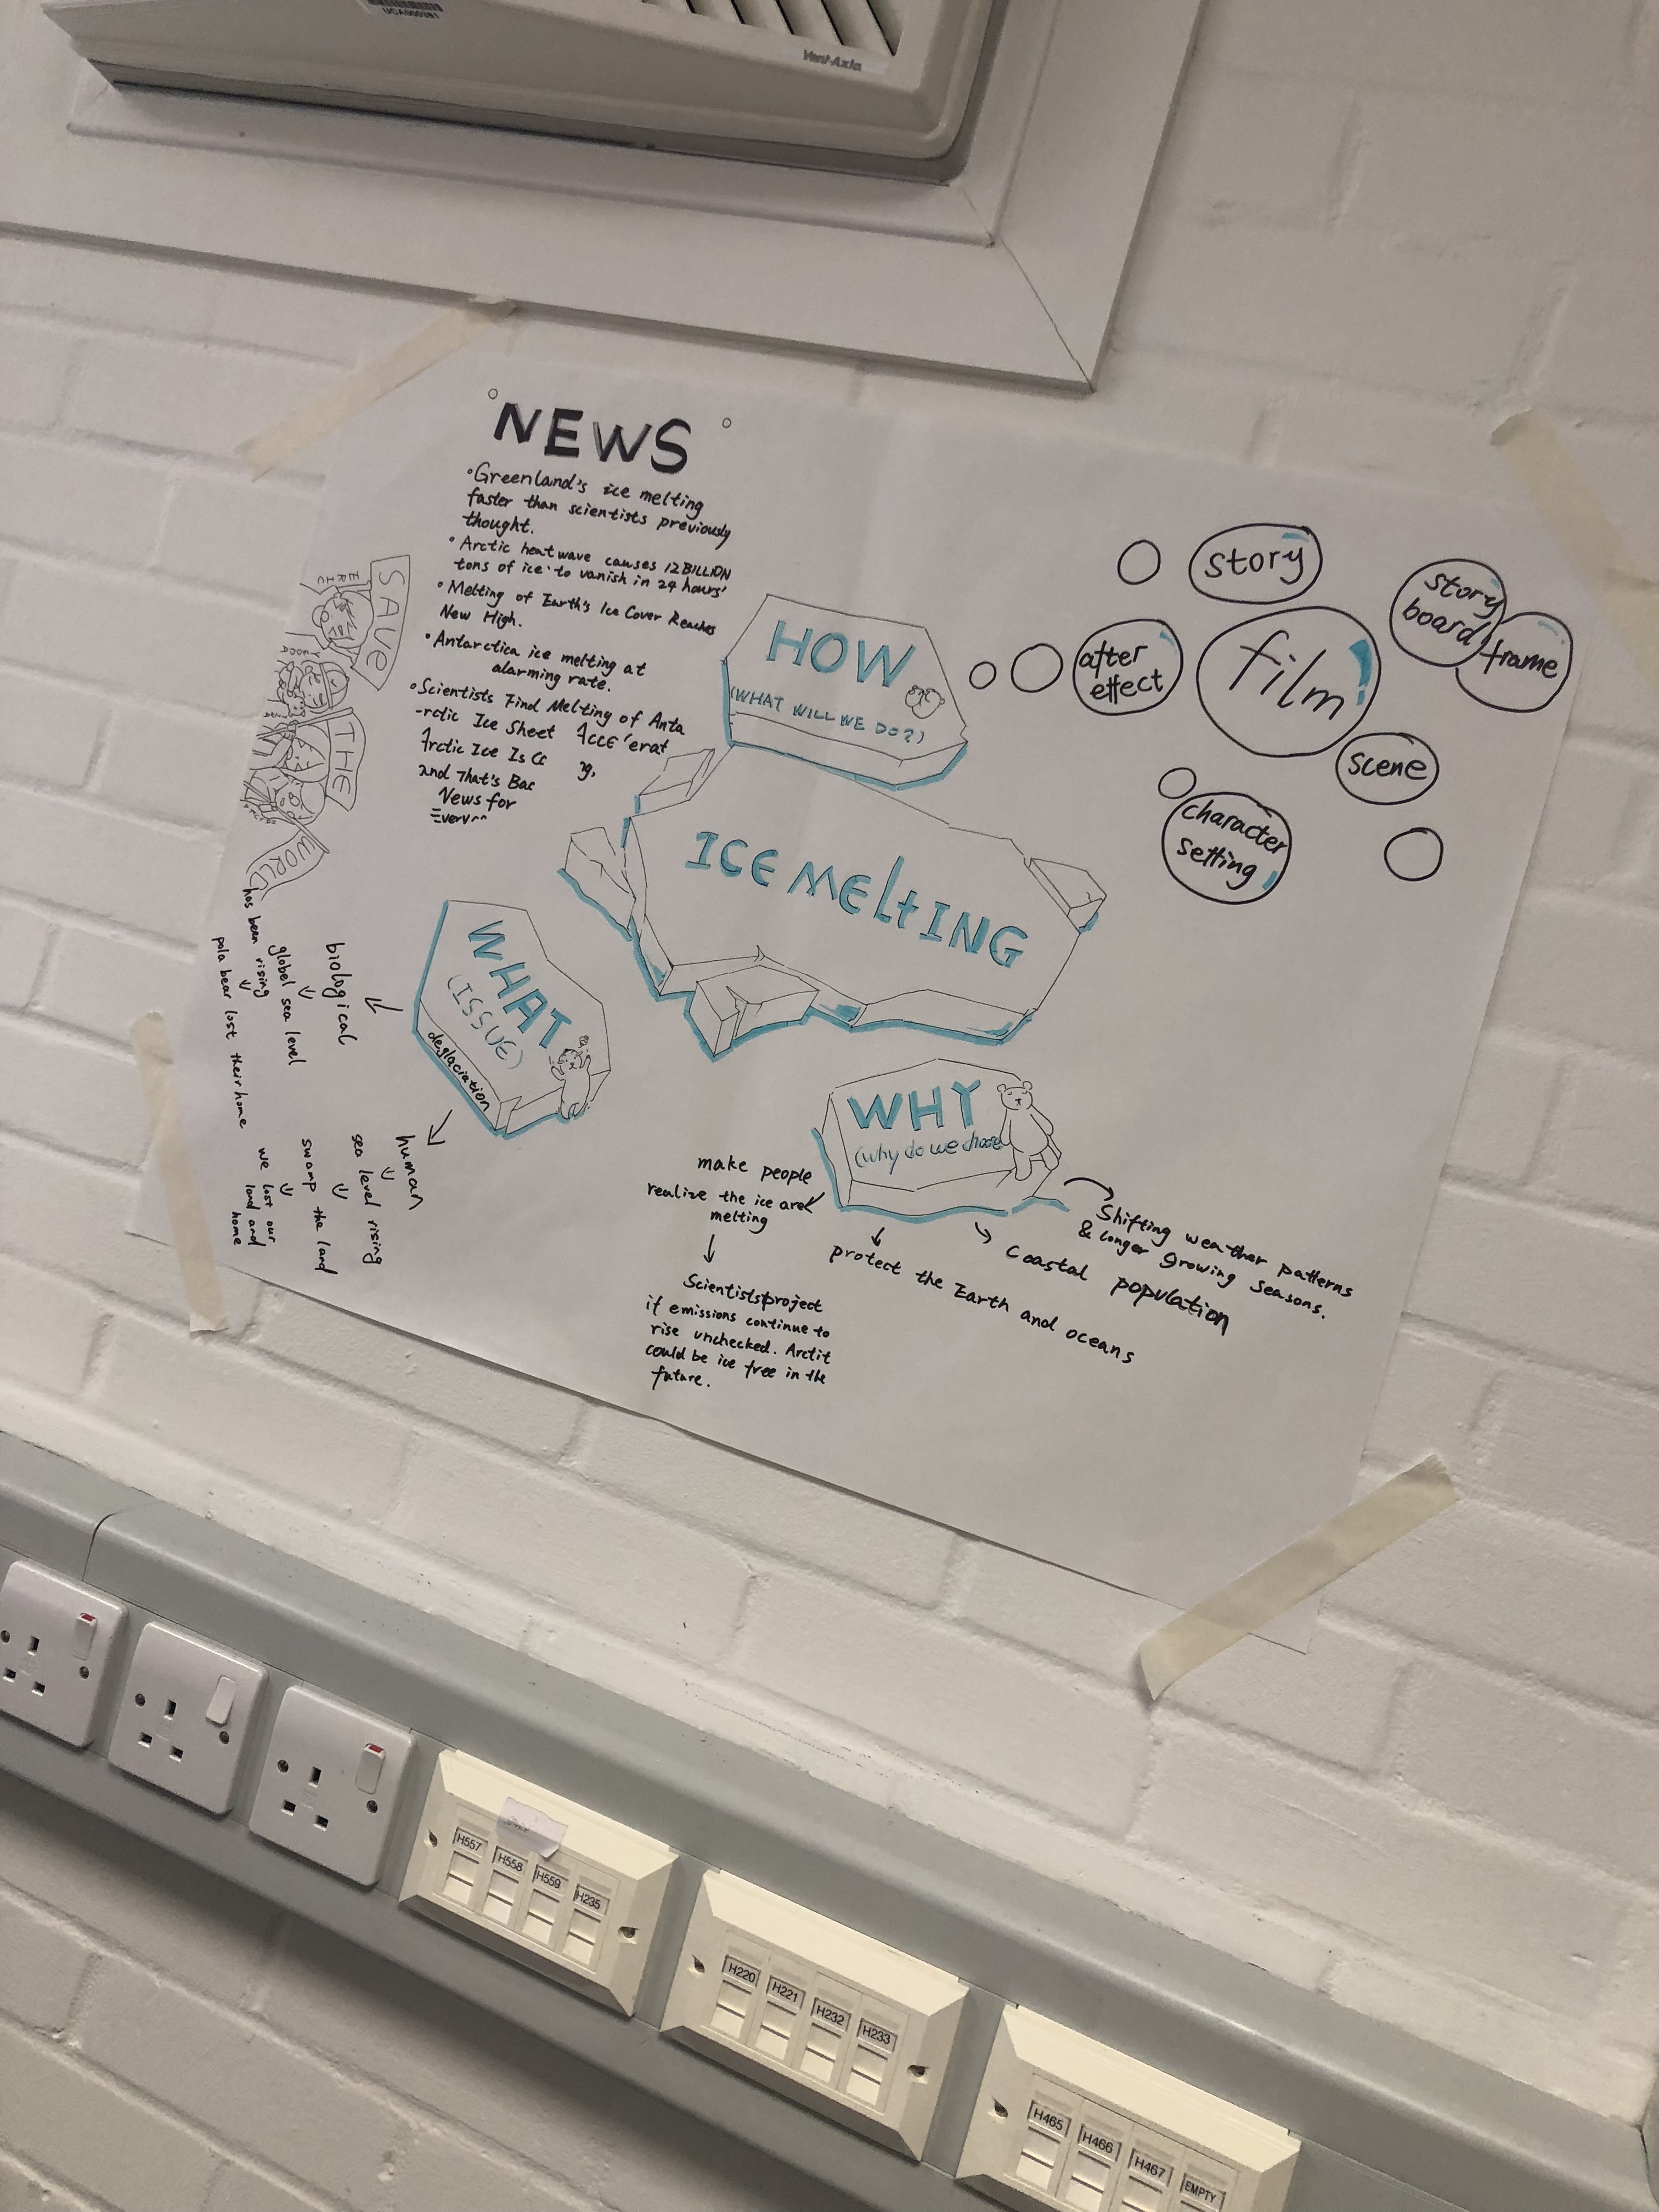 Vent-Axia
NEWS
•Greenland's ice melting
faster than scientists previously
thought.
•Arctic heatwave causes 12 BILLION
tons of ice to vanish in 24 hours'
•Melting of Earth's Ice Cover Reaches
New High.
•Antarctica ice melting at
alarming rate.
•Scientists Find Melting of Anta
-rctic Ice Sheet
Arctic Ice Is
and That's
News for
SAVE
THE
WORLD
HOW
(WHAT WILL WE DO?)
story
story
board
frame
after
effect
film!
scene
character
setting
ICE MELtING
WHAT
(ISSUE)
deglaciation
biological
global sea level
has been rising
pola bear lost their home
human
sea level rising
swamp the land
we lost our
land and
home
WHY
(why do we choose
make people
realize the ice are
melting
Scientists project
if emissions continue to
rise unchecked. Arctit
could be ice free in the
future.
protect the Earth and oceans
Coastal population
Shifting weather patterns
& longer growing seasons.
H557 H558 H559 H235
H220 H221 H232 H233
H465 H466 H467 EMPTY